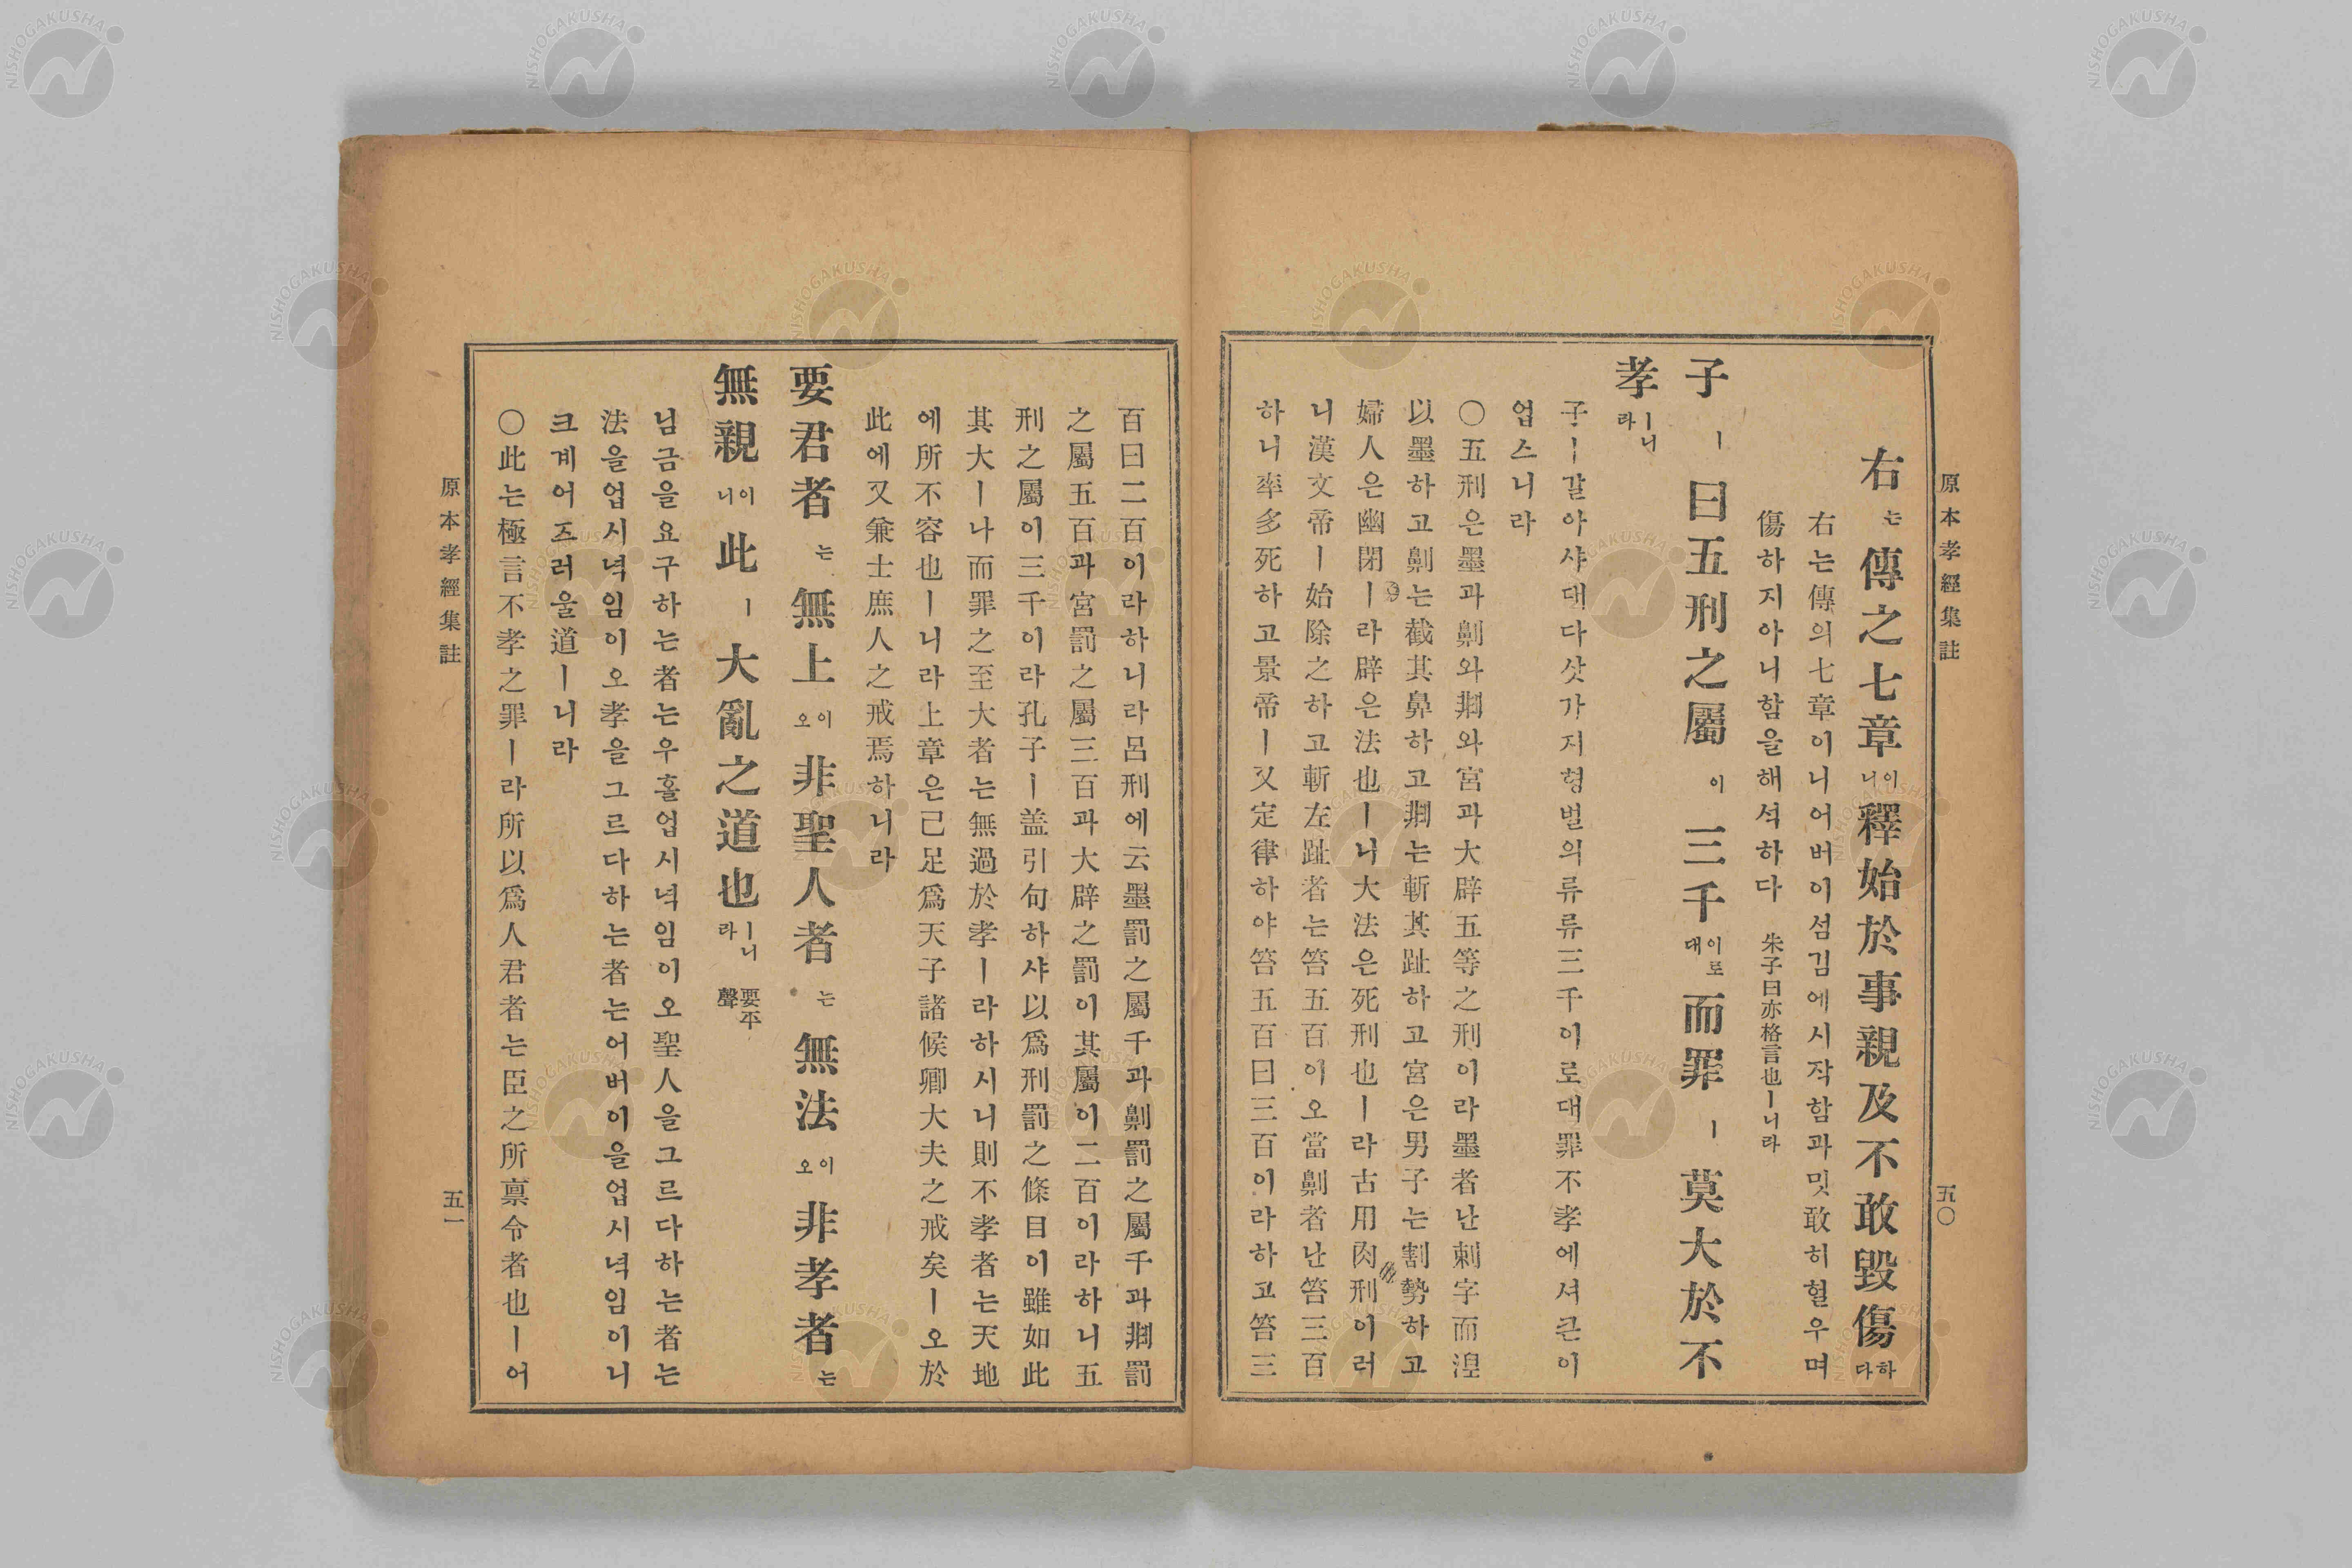 原本孝經集註
五〇
右는傳之七章이니釋始於事親及不敢毀傷하다
右는傳의七章이니어버이섬김에시작함과밋敢히헐우며
傷하지아니함을해석하다 朱子曰亦格言也ㅣ니라
子ㅣ曰五刑之屬이三千이로대而罪ㅣ莫大於不
孝ㅣ니라
子ㅣ갈아샤대다삿가지형벌의류류三千이로대罪不孝에셔큰이
업스니라
〇五刑은墨과劓와剕와宮과大辟五等之刑이라墨者난刺字而湼
以墨하고劓는截其鼻하고剕는斬其趾하고宮은男子는割勢하고
婦人은幽閉ㅣ라辟은法也ㅣ니大法은死刑也ㅣ라古用肉刑이러
니漢文帝ㅣ始除之하고斬左趾者는笞五百이오當劓者난笞三百
하니率多死하고景帝ㅣ又定律하야笞五百曰三百이라하고笞三
百曰二百이라하니라呂刑에云墨罰之屬千과劓罰之屬千과剕罰
之屬五百과宮罰之屬三百과大辟之罰이其屬이二百이라하니五
刑之屬이三千이라孔子ㅣ盖引句하샤以爲刑罰之條目이雖如此
其大ㅣ나而罪之至大者는無過於孝ㅣ라하시니則不孝者는天地
에所不容也ㅣ니라上章은己足爲天子諸候卿大夫之戒矣ㅣ오於
此에又兼士庶人之戒焉하니라
要君者는無上이오非聖人者는無法이오非孝者는
無親이니此ㅣ大亂之道也ㅣ니라 要平聲
님금을요구하는者는우홀업시녁임이오聖人을그르다하는者는
法을업시녁임이오孝을그르다하는者는어버이을업시녁임이니
크계어즈러울道ㅣ니라
〇此는極言不孝之罪ㅣ라所以爲人君者는臣之所禀令者也ㅣ어
原本孝經集註
五一
NISHOGAKUSHA